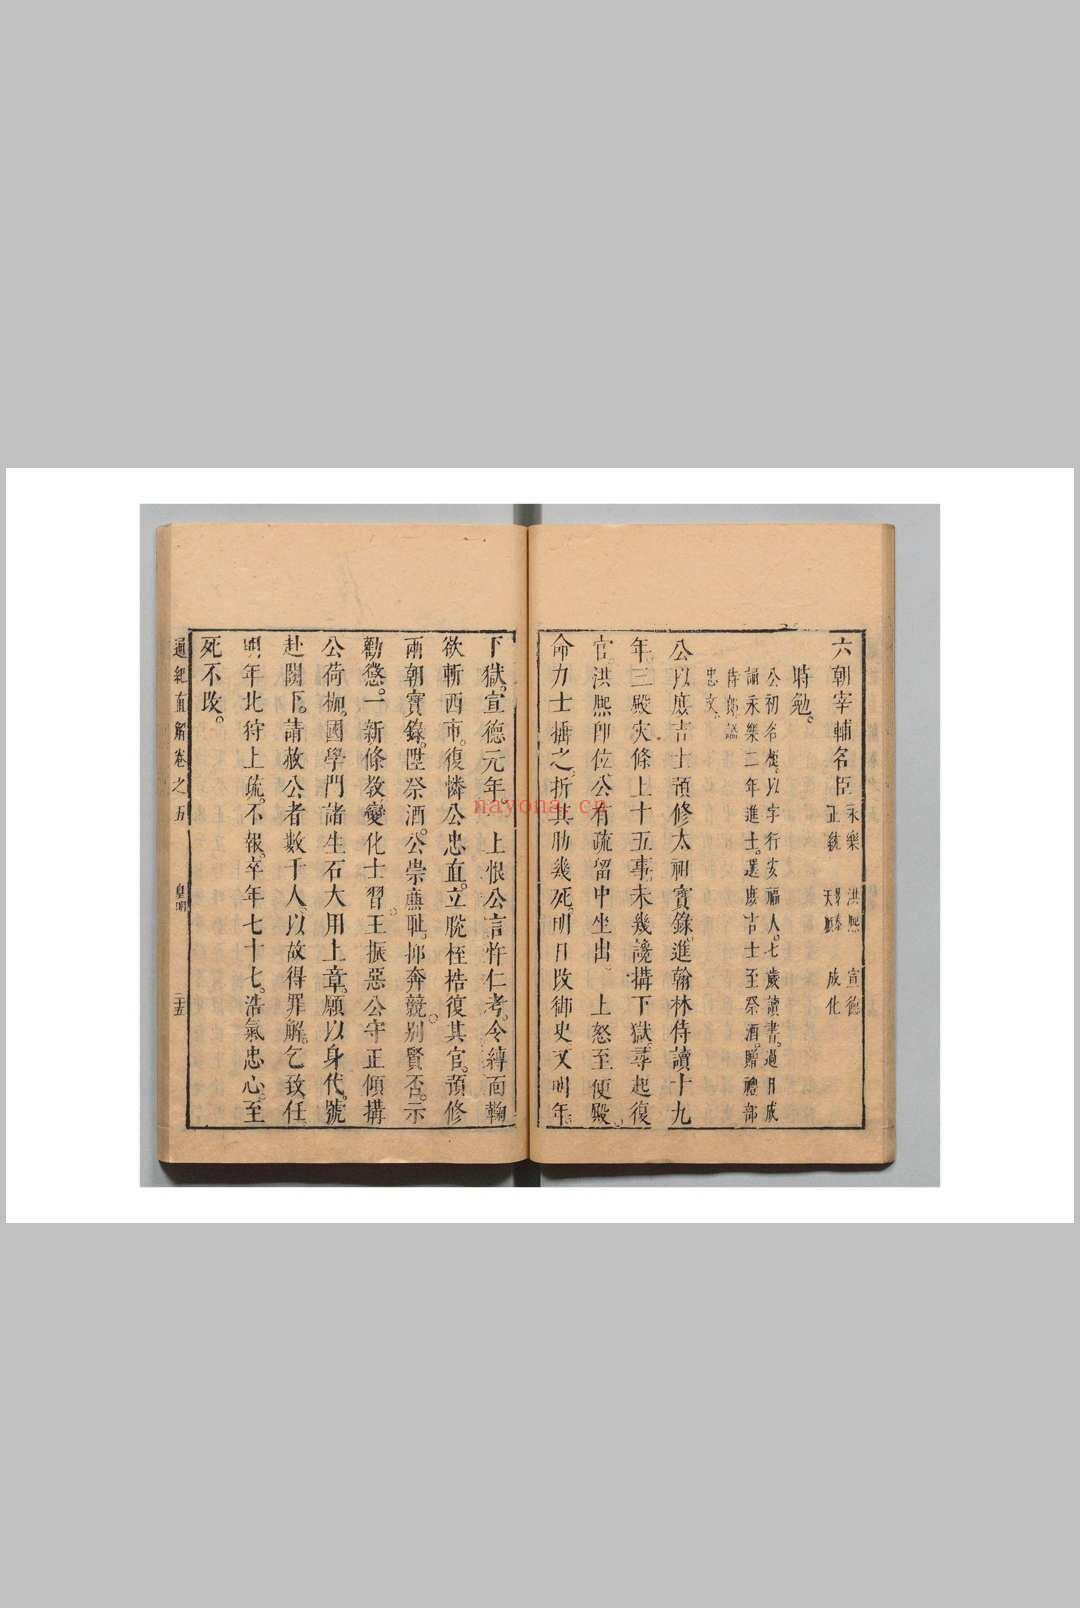 六朝宰輔名臣 永樂 洪熙 宣德
正統 景泰 天順 成化
時勉。
公初名懋。以字行安福人。七歲讀書。過目成
誦永樂二年進士。選庶吉士至祭酒。贈禮部
侍郎謚
忠文。
公以庶吉士預修太祖實錄進翰林侍讀十九
年三殿灾條上十五事未幾讒搆下獄。尋起復
官。洪熙卽位公有疏留中坐出。上怒至便殿。
命力士捶之。折其肋幾死。明日改御史又明年。
下獄。宣德元年。上恨公言忤仁考。令縛面鞠
欲斬西市。復憐公忠直。立脫桎梏復其官。預修
兩朝實錄。陞祭酒。公崇廉恥。抑奔競。别賢否。示
勸懲。一新條敎變化士習。王振惡公守正傾搆
公荷枷。國學門諸生石大用上章。願以身代。號
赴闕下。請赦公者數千人。以故得罪解。乞致仕。
明年北狩上疏。不報。卒年七十七。浩氣忠心。至
死不改。
通紀直解卷之五 皇明 三五
nayona.cn